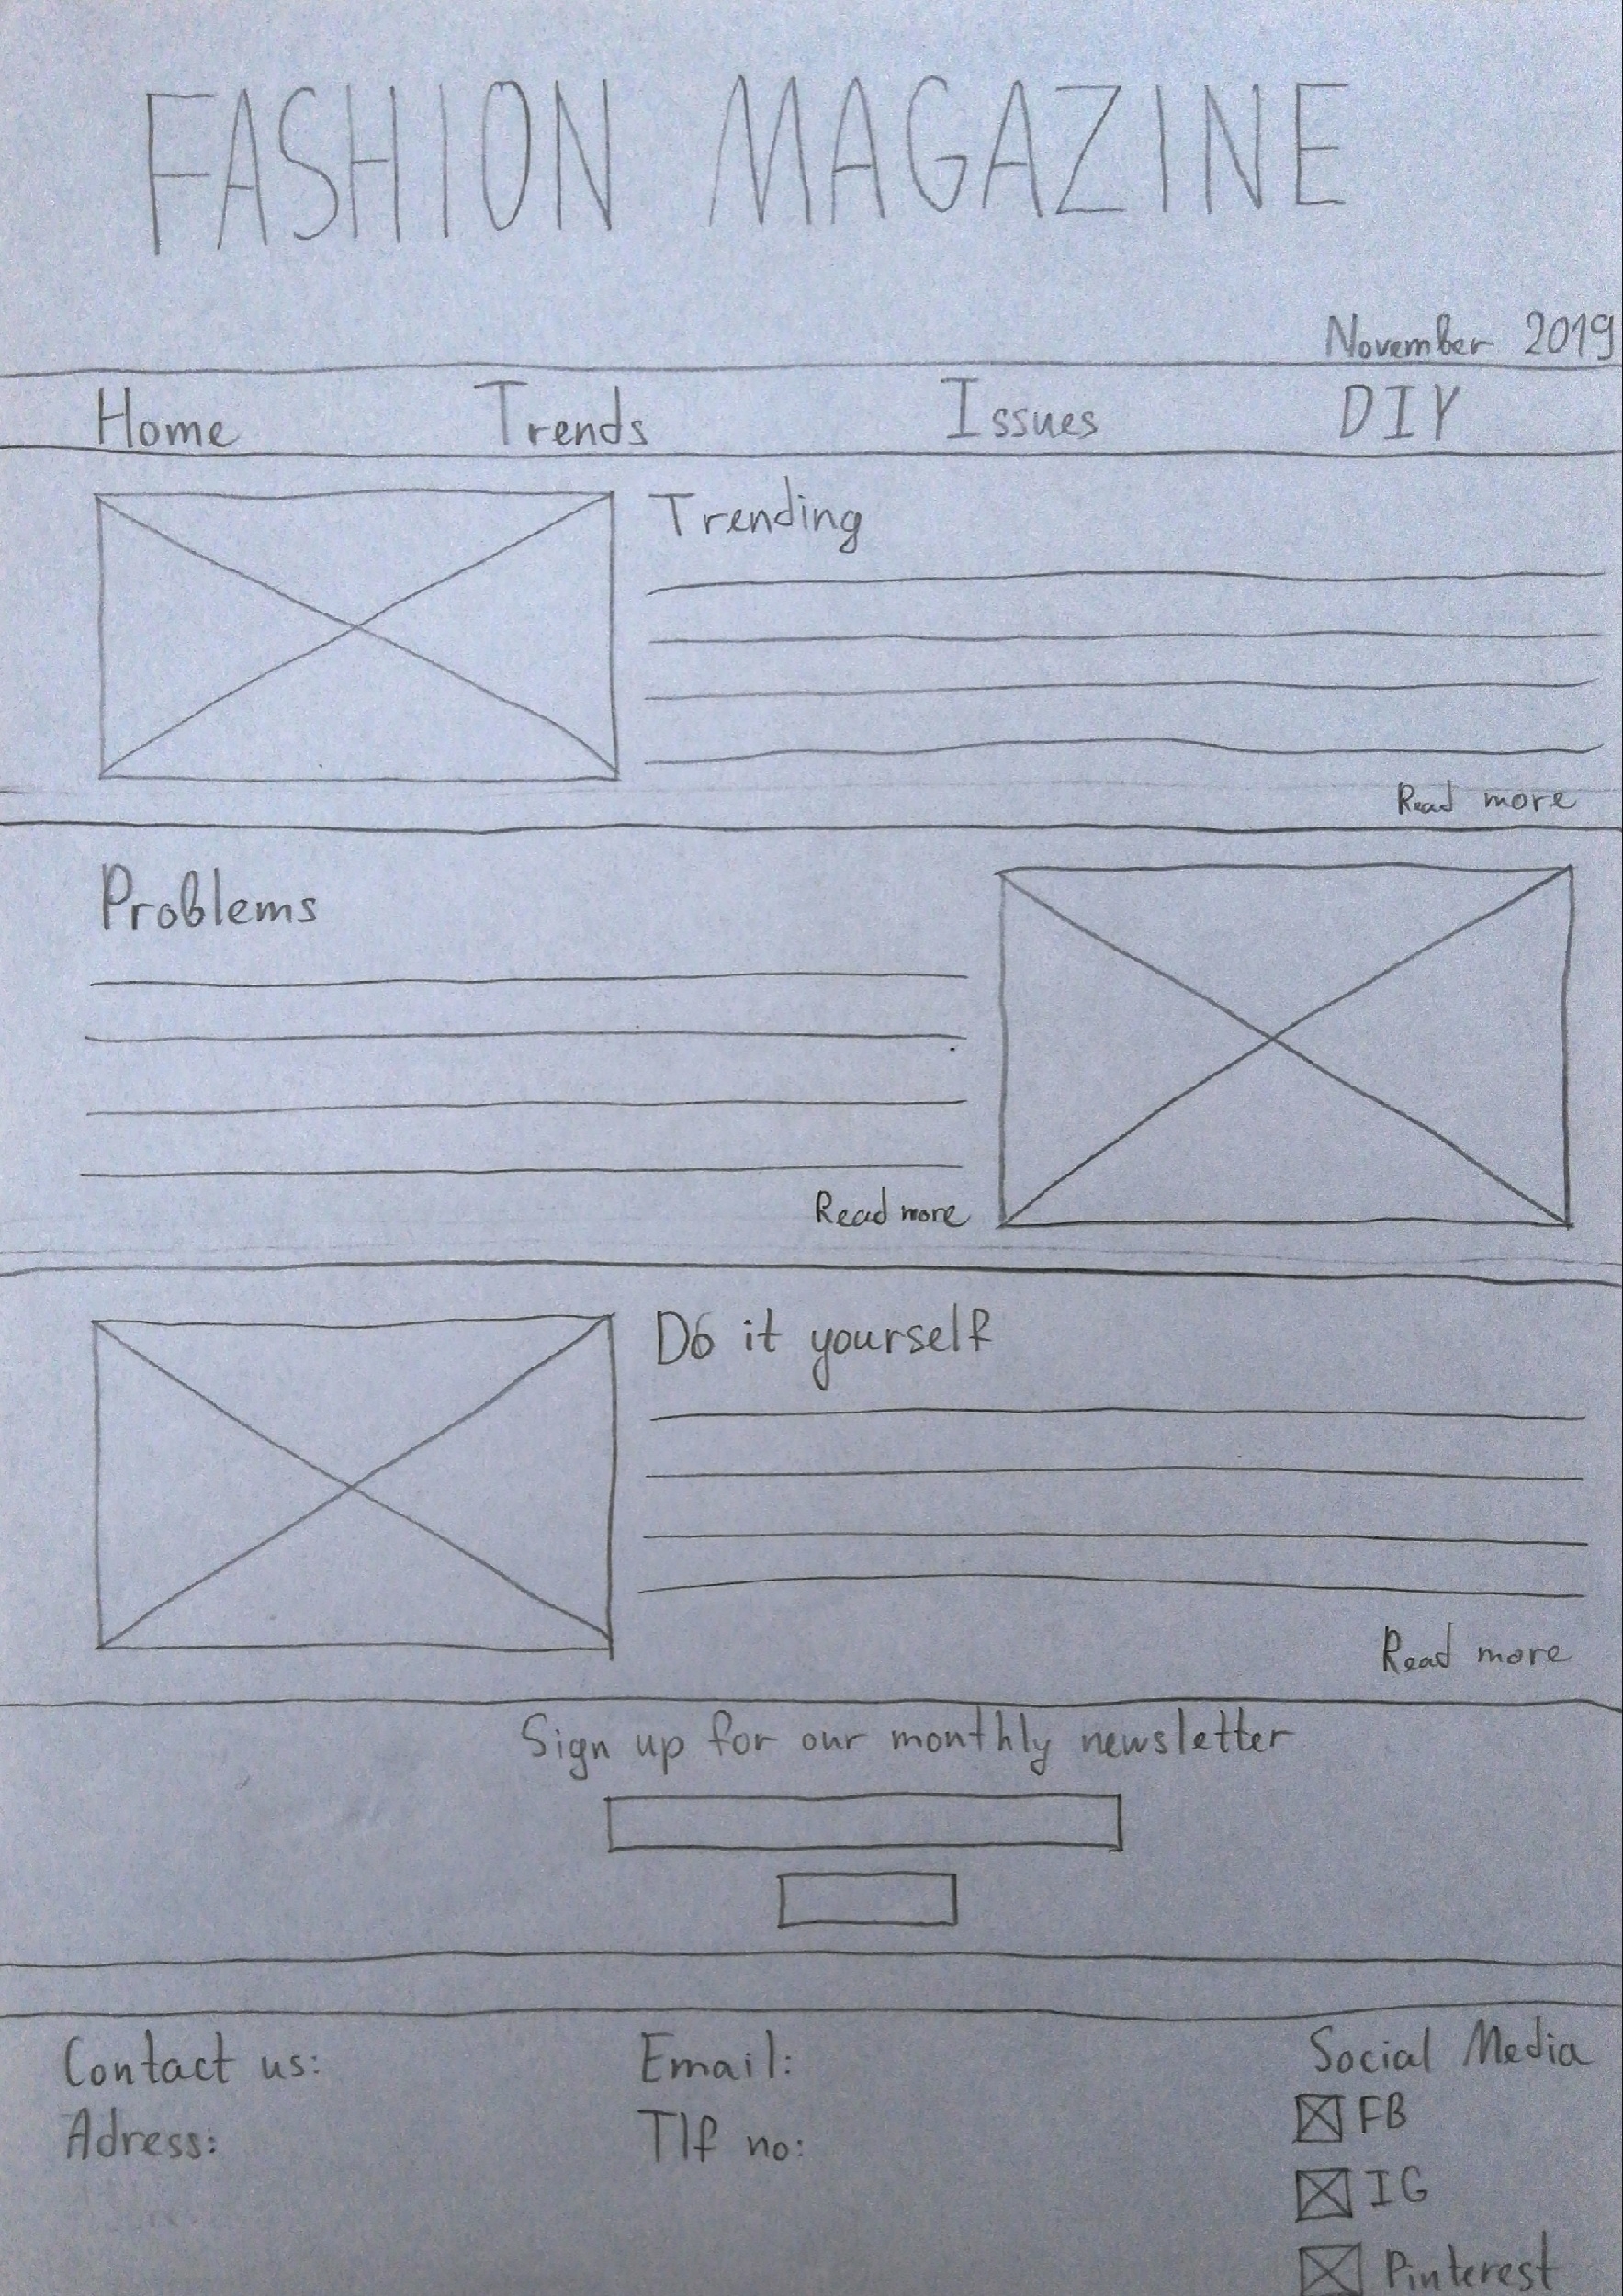 FASHION MAGAZINE
November 2019
Home Trends Issues DIY
Trending
Read more
Problems
Read more
Do it yourself
Read more
Sign up for our monthly newsletter
Contact us:
Adress:
Email:
Tlf no:
Social Media
FB
IG
Pinterest